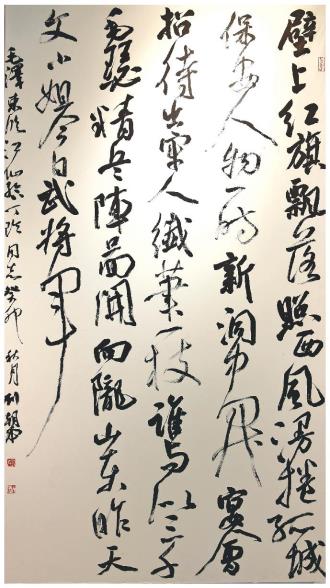 壁上红旗飘落照西风漫捲孤城
保安人物一时新洞中开宴会
招待出牢人纤笔一枝谁与似三千
毛瑟精兵阵图开向陇山东昨天
文小姐今日武将军
毛泽东临江仙给丁玲同志癸卯秋月刘